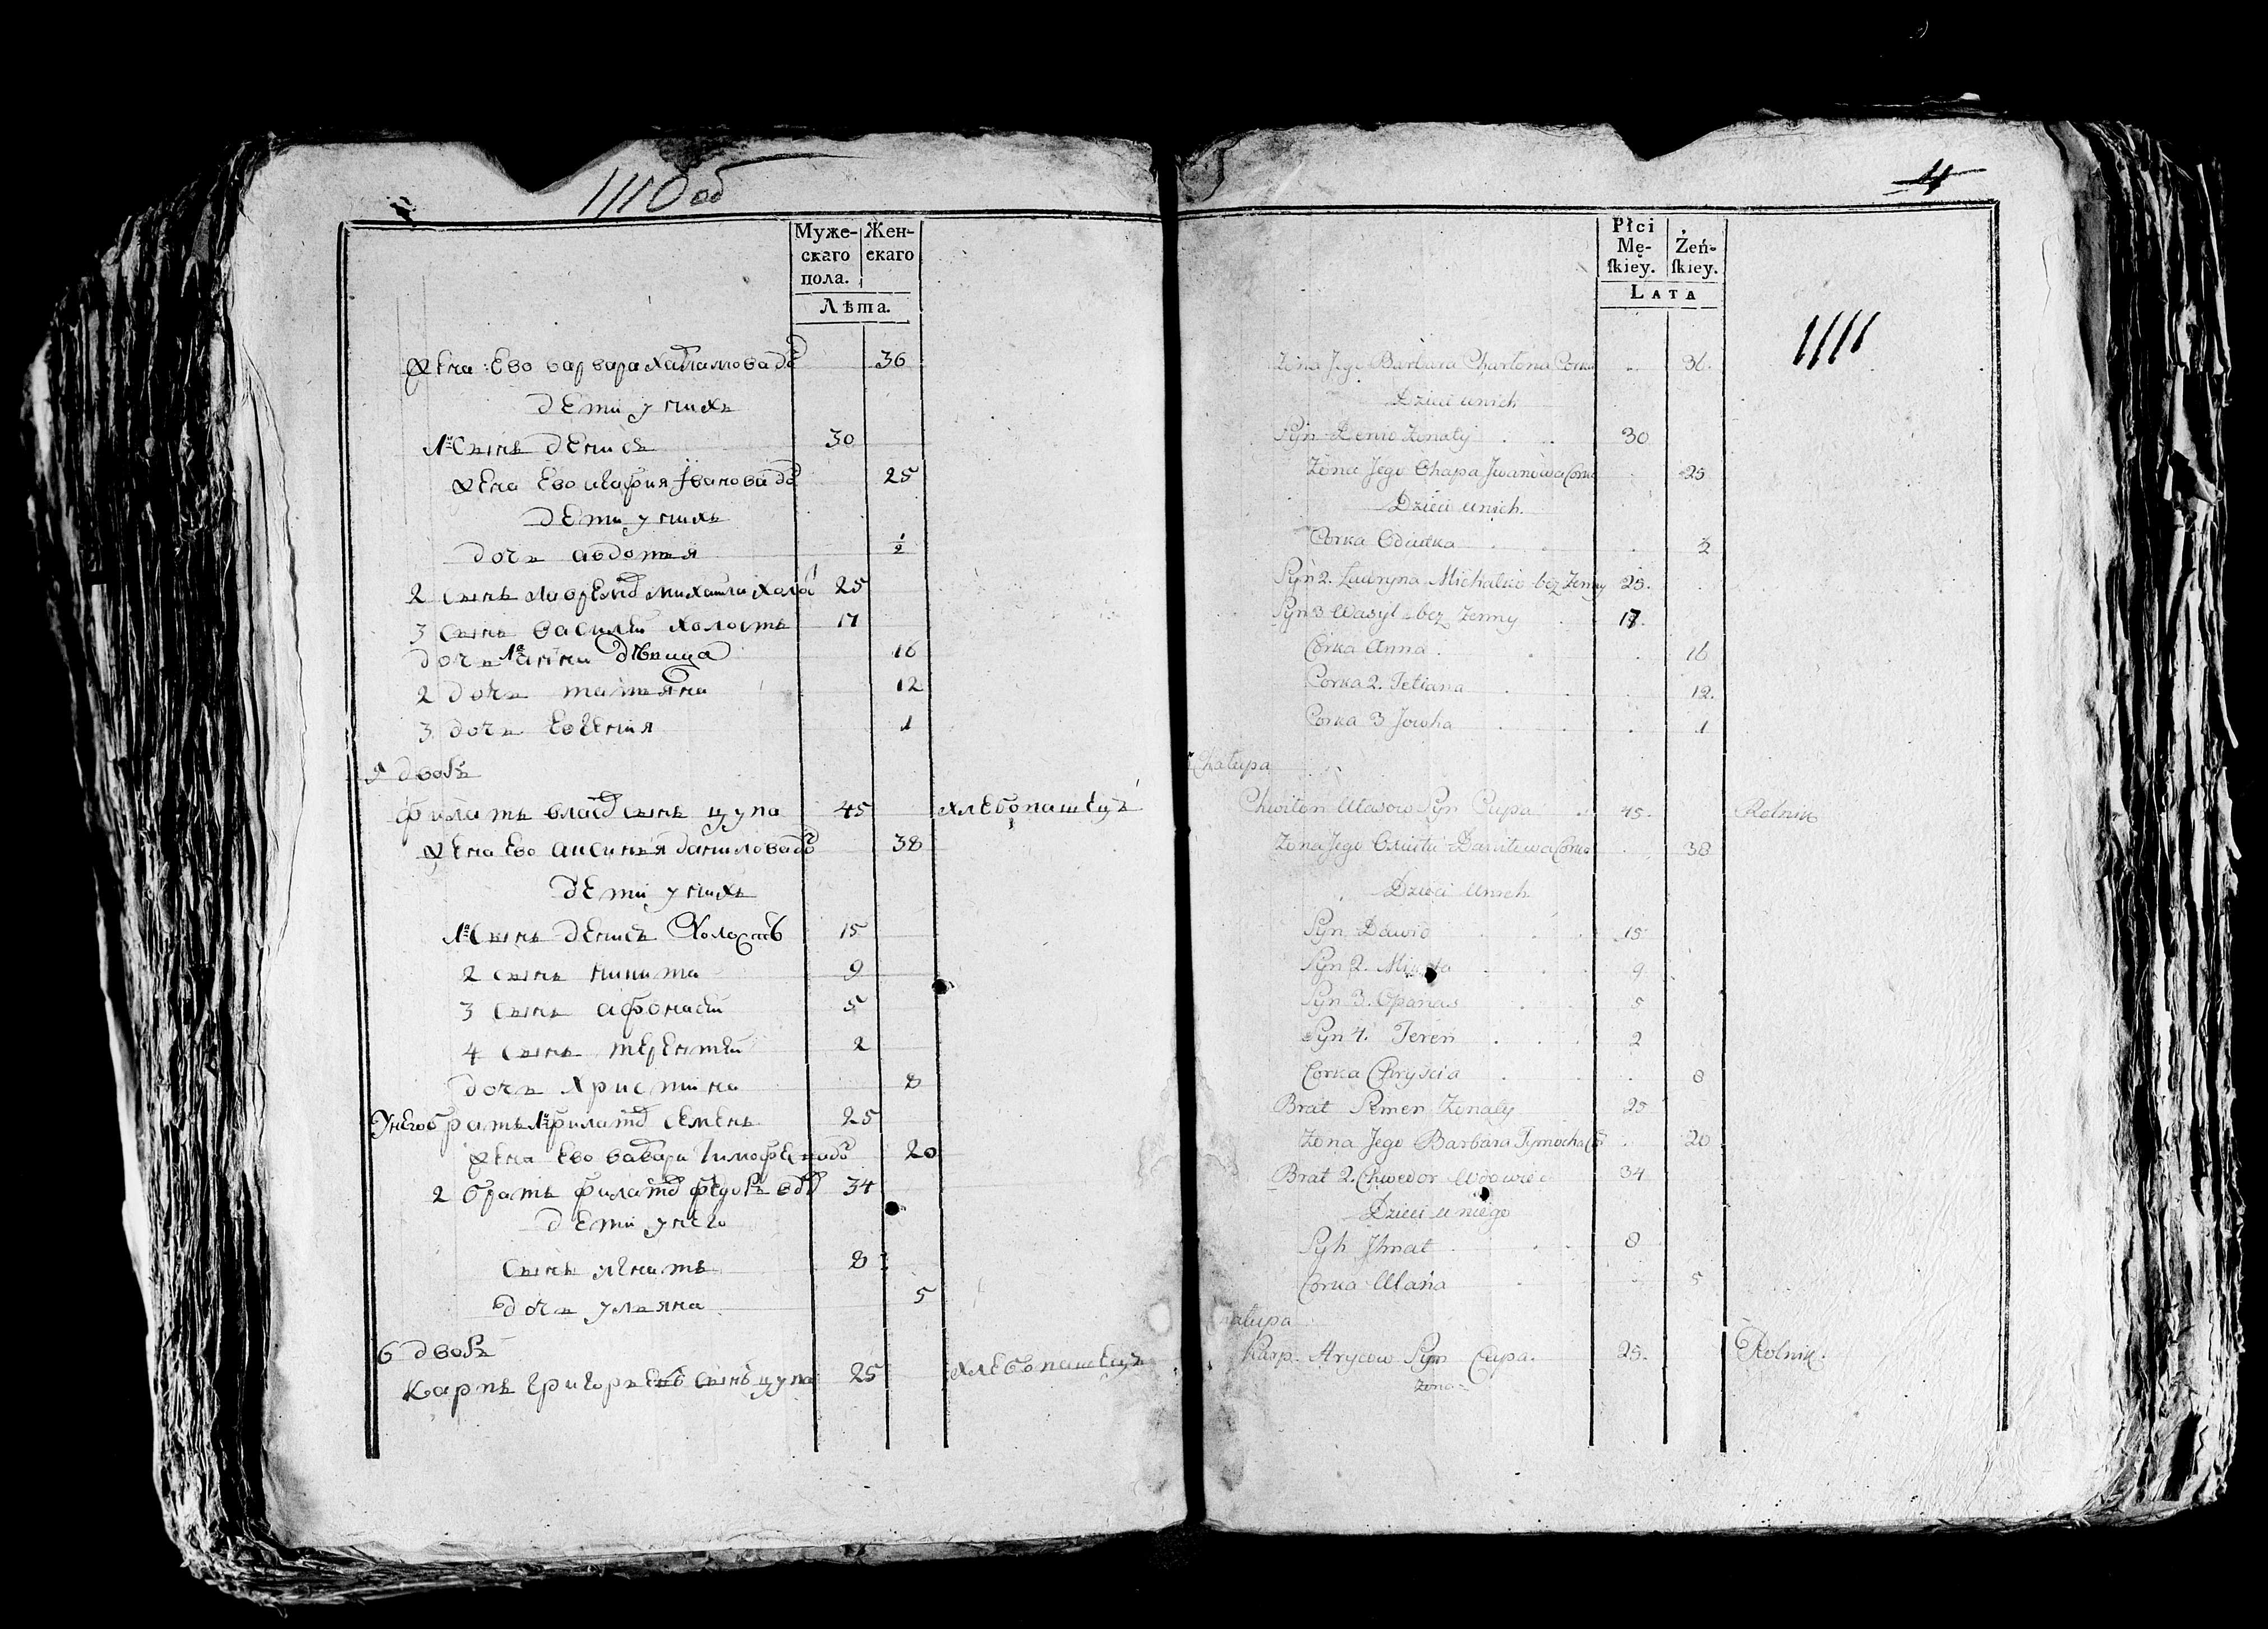 1110 об
Муже- Жен-
скаго скаго
пола.
Лѣта.
жена Ево варвара Харламова до 36
дети у нихъ
1й Сынъ денисъ 30
жена Ево агафия Іванова до 25
дети у нихъ
дочь авдотья ½
2 сынъ лаврентей михаила холос 25
3 сынъ василей холостъ 17
дочь 1я анна дѣвица 16
2 дочь татьяна 12
3 дочь евгения 1
5 дворъ
филатъ власов сынъ цупа 45 хлебопашецъ
жена Ево аксинья данилова до 38
дети у нихъ
1й Сынъ денисъ Холостъ 15
2 сынъ никита 9
3 сынъ афонасей 5
4 сынъ терентей 2
дочь христина 8
У него братъ 1й филатов семенъ 25
жена Ево варвара тимофеева до 20
2 братъ филатов федоръ вдов 34
дети у него
сынъ игнатъ 8
дочь ульяна 5
6 дворъ
карпъ григорьевъ сынъ цупа 25 хлебопашецъ
4
Płci
Mę- Żeń-
ſkiey. ſkiey.
LATA
1111
Zona Jego Barbara Charłona Corka 36.
Dzieci unich
Syn Denis Zonaty 30
Zona Jego Chapa Jwanowa Corka 25
Dzieci unich.
Corka Odudka ½
Syn 2. Ławryna Michalko bez Zenny 25.
Syn 3 Wasyl bez Zenny 17.
Corka Anna. 16
Corka 2. Tetiana 12.
Corka 3 Jowha 1
Chałupa
Chwiłon Ułasow Syn Cupa 45. Rolnik
Zona Jego Daniłowa Corka 38
Dzieci Unich
Syn Dawid 15
Syn 2. 9
Syn 3. Opanas 5
Syn 4. Tereń 2
Corka Chryscia 8
Brat Semen Zonaty 25
Zona Jego Barbara Tymocha Co 20
Brat 2. Chwedor Wdowiec 34
Dzieci u niego
Syn Jhnat 8
Corka Ulana 5
Chałupa
Karp Hrycow Syn Cupa. 25. Rolnik.
Zona